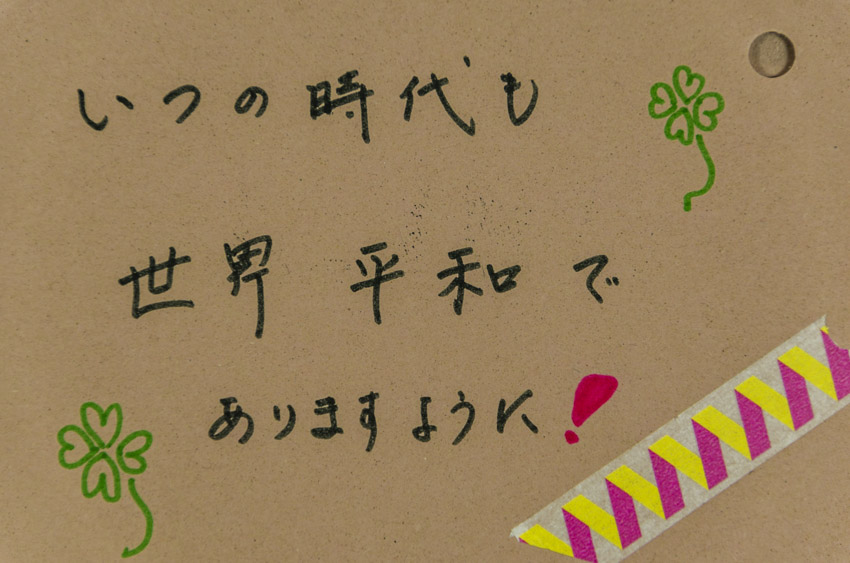 いつの時代も
世界平和で
ありますように!